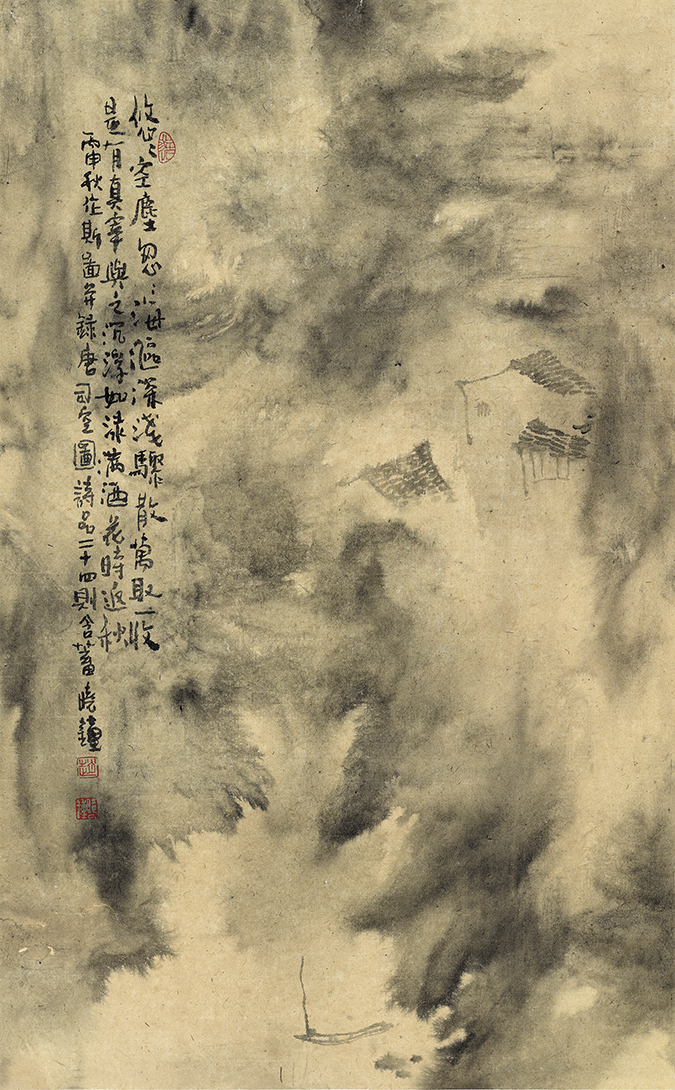 悠〻空塵忽〻海漚深淺驟散萬取一收
是有真宰與之沉浮如淥滿酒花時返秋
丙申秋作斯啚并録唐司空圖詩品二十四則含蓄曉鐘